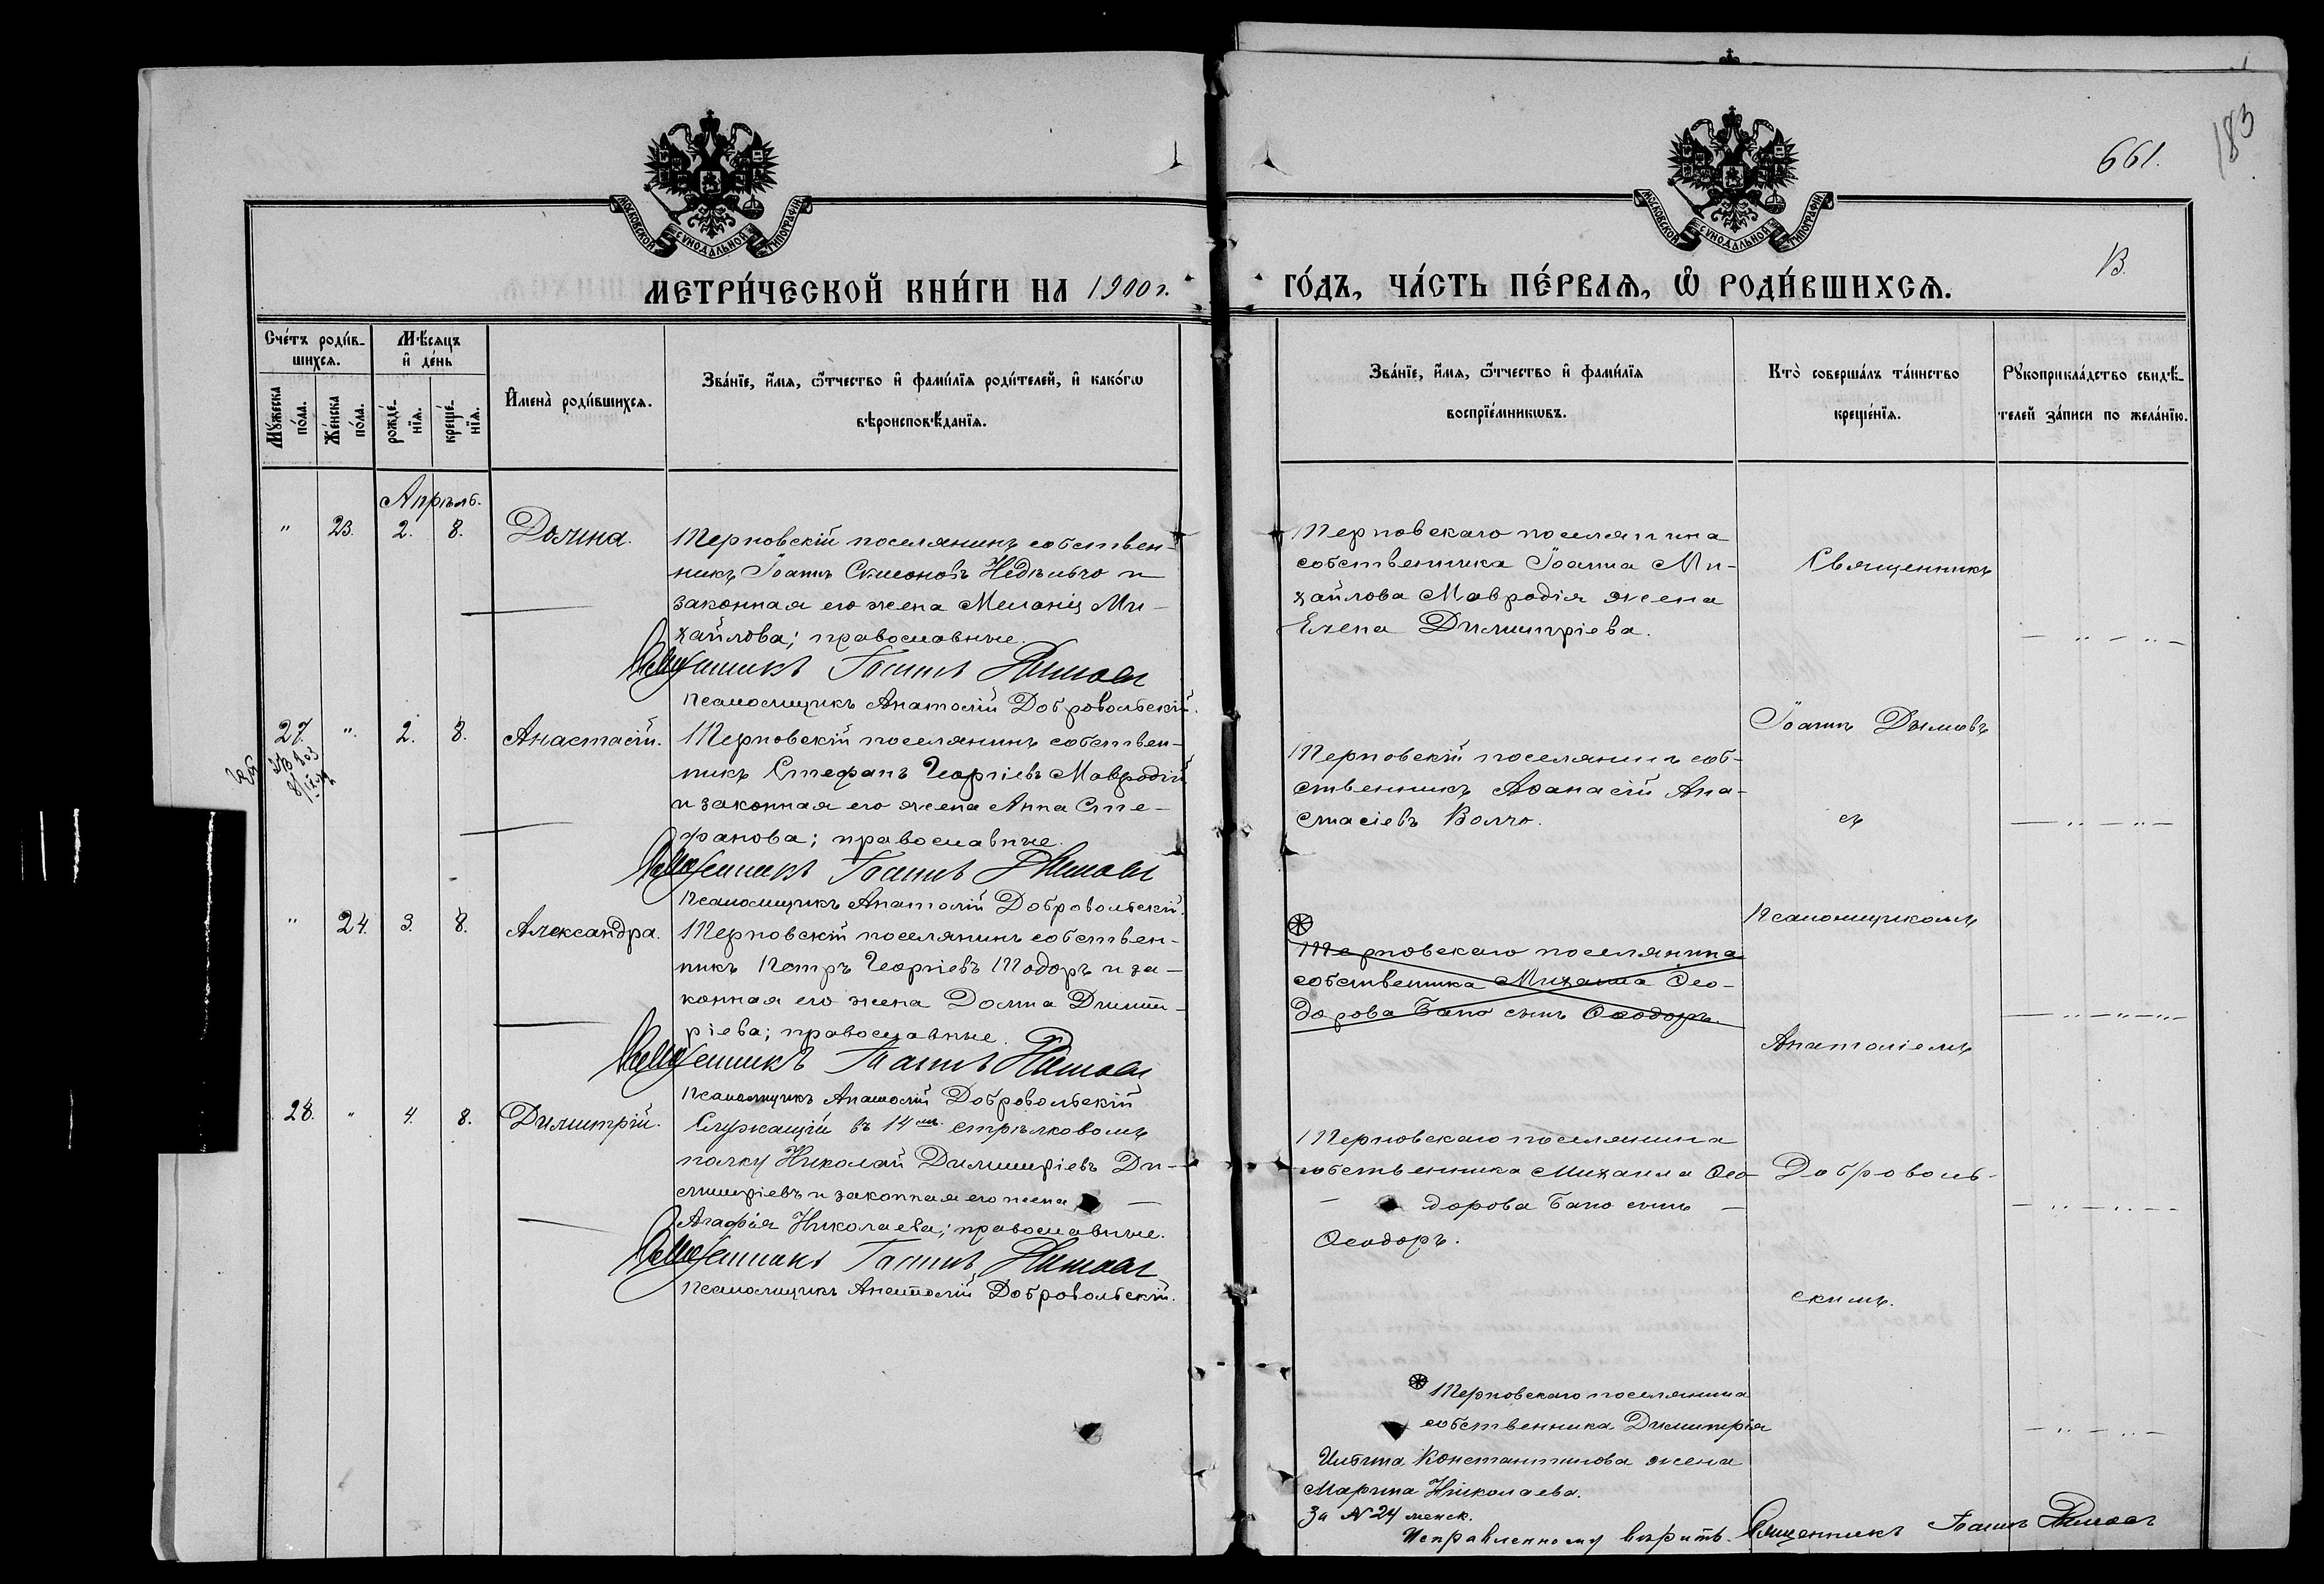 661.
183
В.
МОСКОВСКОЙ СѴНОДАЛЬНОЙ ТИПОГРАФІИ
МОСКОВСКОЙ СѴНОДАЛЬНОЙ ТИПОГРАФІИ
МЕТРИ́ЧЕСКОЙ КНИ́ГИ НА 1900 г.
ГО́ДЪ, ЧА́СТЬ ПЕ́РВАѦ, Ѡ҆ РОДИ́ВШИХСѦ.
Сче́тъ роди́в-
шихсѧ.
Мꙋ́жеска
по́ла.
Же́нска
по́ла.
Мѣ́сѧцъ
и҆ де́нь
рожде́-
нїѧ.
креще́-
нїѧ.
И҆мена̀ роди́вшихсѧ.
Зва́нїе, и҆́мѧ, ѻ҆́тчество и҆ фами́лїѧ роди́телей, и҆ како́гѡ
вѣроисповѣ́данїѧ.
Зва́нїе, и҆́мѧ, ѻ҆́тчество и҆ фами́лїѧ
воспрїе́мникѡвъ.
Кто̀ соверша́лъ та́инство
креще́нїѧ.
Рꙋкоприкла́дство свидѣ́-
телей за́писи по жела́нїю.
Апрѣль.
" 23. 2. 8. Домна.
Терновскій поселянинъ собствен-
никъ Іоаннъ Симеоновъ Недѣльчо и
законная его жена Меланія Ми-
хайлова; православные.
Священникъ Іоаннъ Дымовъ
Псаломщикъ Анатолій Добровольскій.
Терновскаго поселянина
собственника Іоанна Ми-
хайлова Мавродія жена
Елена Димитріева.
Священникъ
27. ". 2. 8. Анастасій.
Терновскій поселянинъ собствен-
никъ Стефанъ Георгіевъ Мавродій
и законная его жена Анна Сте-
фанова; православные.
Священникъ Іоаннъ Дымовъ
Псаломщикъ Анатолій Добровольскій.
Терновскій поселянинъ соб-
ственникъ Аѳанасій Ана-
стасіевъ Волчо.
Іоаннъ Дымовъ
съ
" 24. 3. 8. Александра.
Терновскій поселянинъ собствен-
никъ Петръ Георгіевъ Тодоръ и за-
конная его жена Домна Димит-
ріева; православные.
Священникъ Іоаннъ Дымовъ
Псаломщикъ Анатолій Добровольскій
Терновскаго поселянина
собственника Михаила Ѳео-
дорова Бано сынъ Ѳеодоръ.
Псаломщикомъ
Анатоліемъ
28. " 4. 8. Димитрій.
Служащій въ 14мъ стрѣлковомъ
полку Николай Димитріевъ Ди-
митріевъ и законная его жена
Агафія Николаева; православные.
Священникъ Іоаннъ Дымовъ
Псаломщикъ Анатолій Добровольскій.
Терновскаго поселянина
собственника Михаила Ѳео-
дорова Бано сынъ
Ѳеодоръ.
Доброволь-
скимъ.
Терновскаго поселянина
собственника Димитрія
Константинова жена
Марина Николаева.
За № 24 женск.
Исправленному вѣрить. Священникъ Іоаннъ Дымовъ